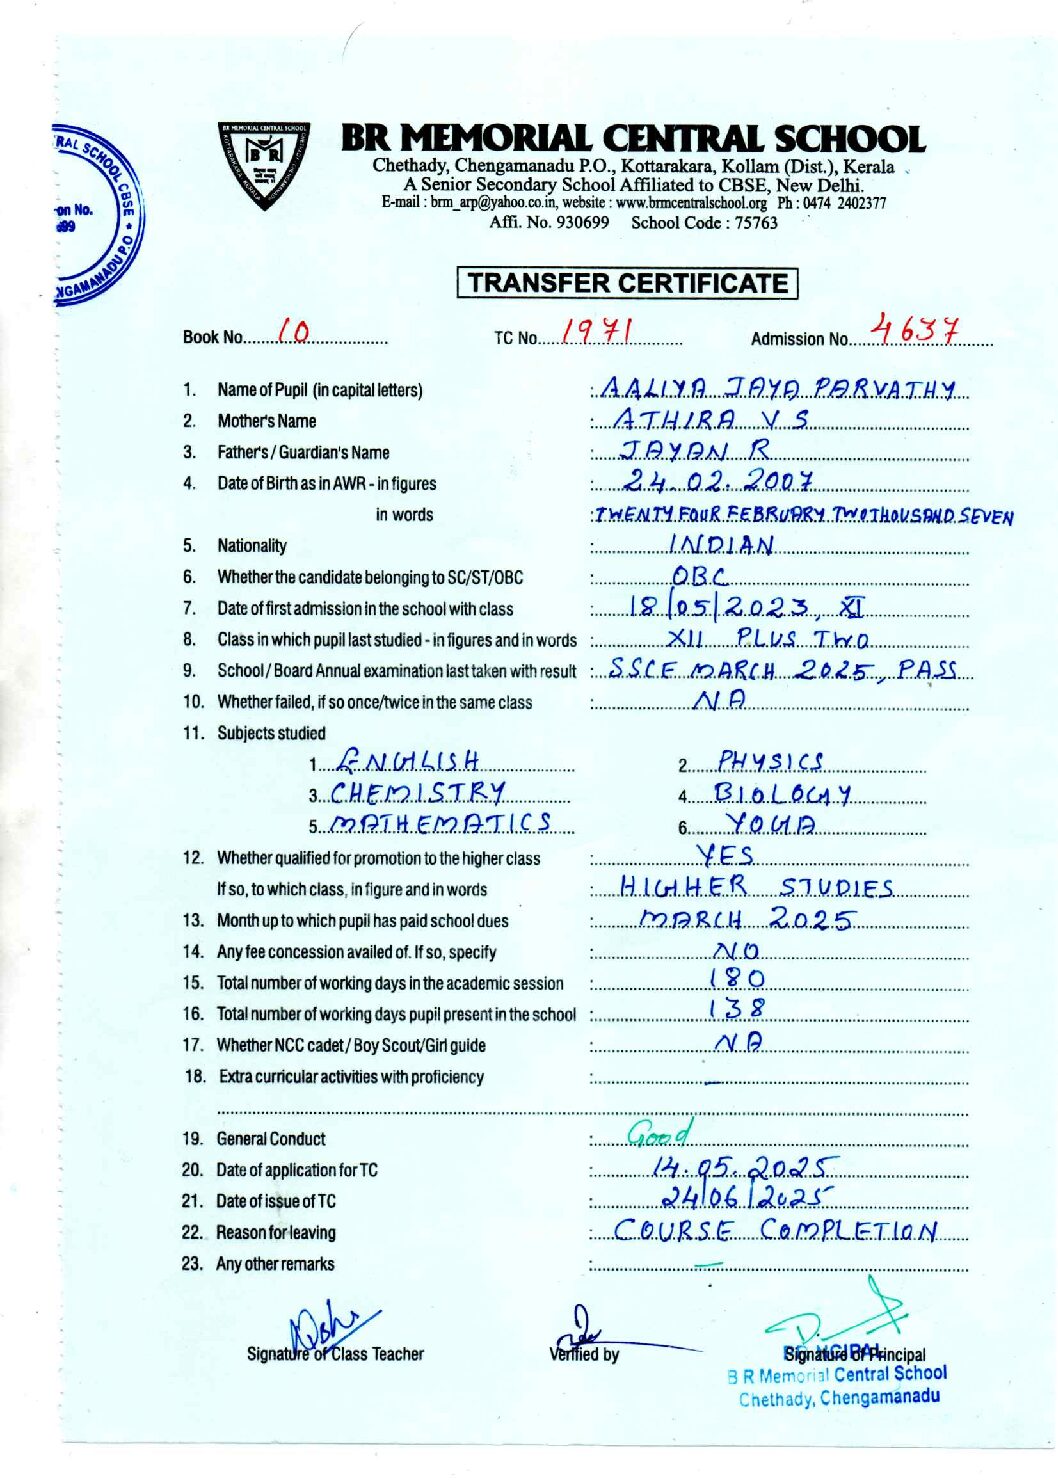 BR MEMORIAL CENTRAL SCHOOL
Chethady, Chengamanadu P.O., Kottarakara, Kollam (Dist.), Kerala
A Senior Secondary School Affiliated to CBSE, New Delhi.
E-mail : brm_arp@yahoo.co.in, website : www.brmcentralschool.org Ph : 0474 2402377
Affi. No. 930699 School Code : 75763
TRANSFER CERTIFICATE
Book No. 10 TC No. 1971 Admission No. 4637
1. Name of Pupil (in capital letters) : AALIYA JAYA PARVATHY
2. Mother's Name : ATHIRA V S
3. Father's / Guardian's Name : JAYAN R
4. Date of Birth as in AWR - in figures : 24.02.2007
in words : TWENTY FOUR FEBRUARY TWO THOUSAND SEVEN
5. Nationality : INDIAN
6. Whether the candidate belonging to SC/ST/OBC : OBC
7. Date of first admission in the school with class : 18/05/2023, XI
8. Class in which pupil last studied - in figures and in words : XII PLUS TWO
9. School / Board Annual examination last taken with result : SSCE MARCH 2025, PASS
10. Whether failed, if so once/twice in the same class : NA
11. Subjects studied
1. ENGLISH 2. PHYSICS
3. CHEMISTRY 4. BIOLOGY
5. MATHEMATICS 6. YOGA
12. Whether qualified for promotion to the higher class : YES
If so, to which class, in figure and in words : HIGHER STUDIES
13. Month up to which pupil has paid school dues : MARCH 2025
14. Any fee concession availed of. If so, specify : NO
15. Total number of working days in the academic session : 180
16. Total number of working days pupil present in the school : 138
17. Whether NCC cadet / Boy Scout/Girl guide : NA
18. Extra curricular activities with proficiency : –
19. General Conduct : Good
20. Date of application for TC : 14.05.2025
21. Date of issue of TC : 24/06/2025
22. Reason for leaving : COURSE COMPLETION
23. Any other remarks : –
Signature of Class Teacher Verified by Signature of Principal
B R Memorial Central School
Chethady, Chengamanadu
RAL SCHOOL CBSE
on No.
NGAMANADU P.O